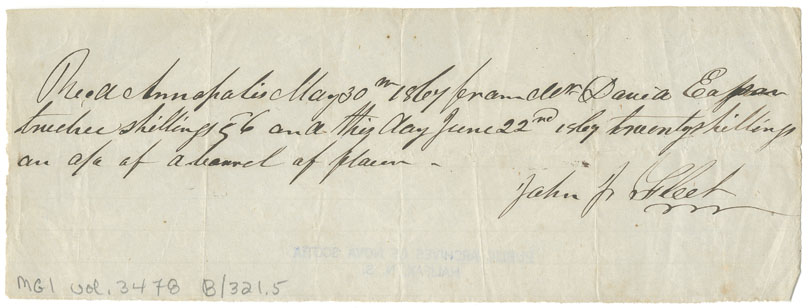 Rec'd Annapolis May 30th 1867 from Mr David Eason
twelve shillings & 6 and this day June 22nd 1867 twenty shillings
on a/c of a barrel of flour -
John J Fleet
PUBLIC ARCHIVES OF NOVA SCOTIA
HALIFAX, N.S.
MG1 vol. 3478 B/321.5